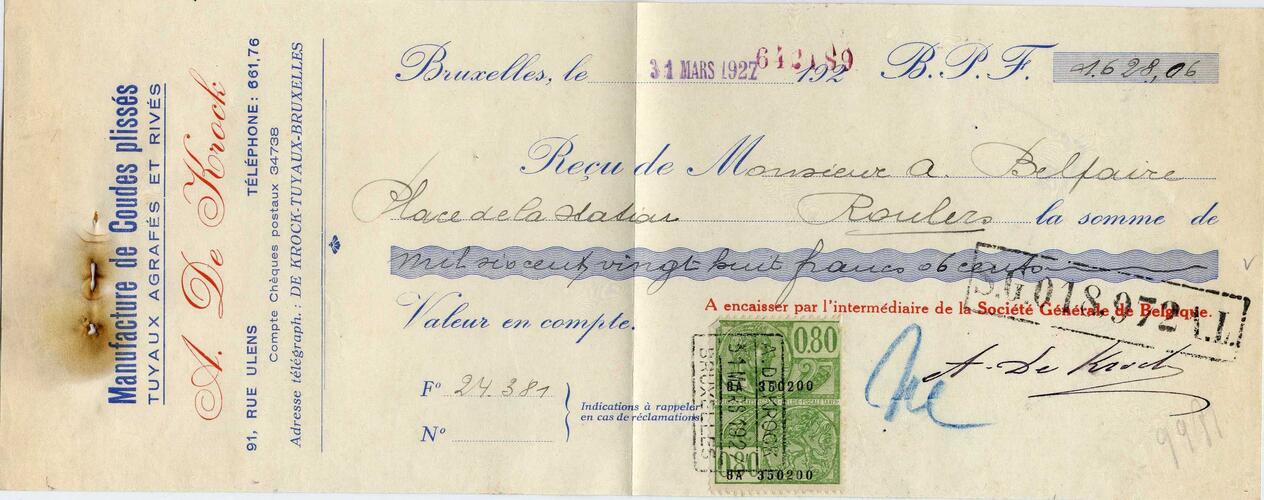 Manufacture de Coudes plissés
TUYAUX AGRAFÉS ET RIVÉS
A. De Krock
91, RUE ULENS TÉLÉPHONE: 661,76
Compte Chèques postaux 34738
Adresse télégraph.: DE KROCK-TUYAUX-BRUXELLES
Bruxelles, le 31 MARS 1927 192 642189 B. P. F. 1.628,06
Reçu de Monsieur A. Belfaire
Place de la Station Roulers la somme de
mil six cent vingt huit francs 06 cents
A encaisser par l'intermédiaire de la Société Générale de Belgique.
S.G.018.972 A.L.
Valeur en compte.
0.80
8A 350200
A. DE KROCK
31 MARS 192
BRUXELLES
A. De Krock
Fº 24.381
Indications à rappeler
en cas de réclamations
Nº
0.80
8A 350200